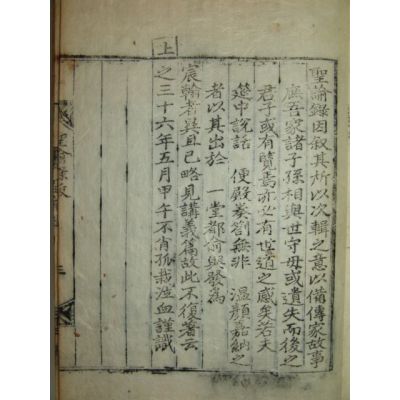 聖諭錄因叙其所以次輯之意以備傳家故事
庶吾家諸子孫相與世守毋或遺失而後之
君子或有覽焉亦必有世道之感矣若夫
筵中說話 便殿奏劄無非 溫顔嘉納之
者以其出於 一堂都俞與發爲
宸翰者異且已略見講義篇故此不復著云
上
之三十六年五月甲午不肖孤栽泣血謹識